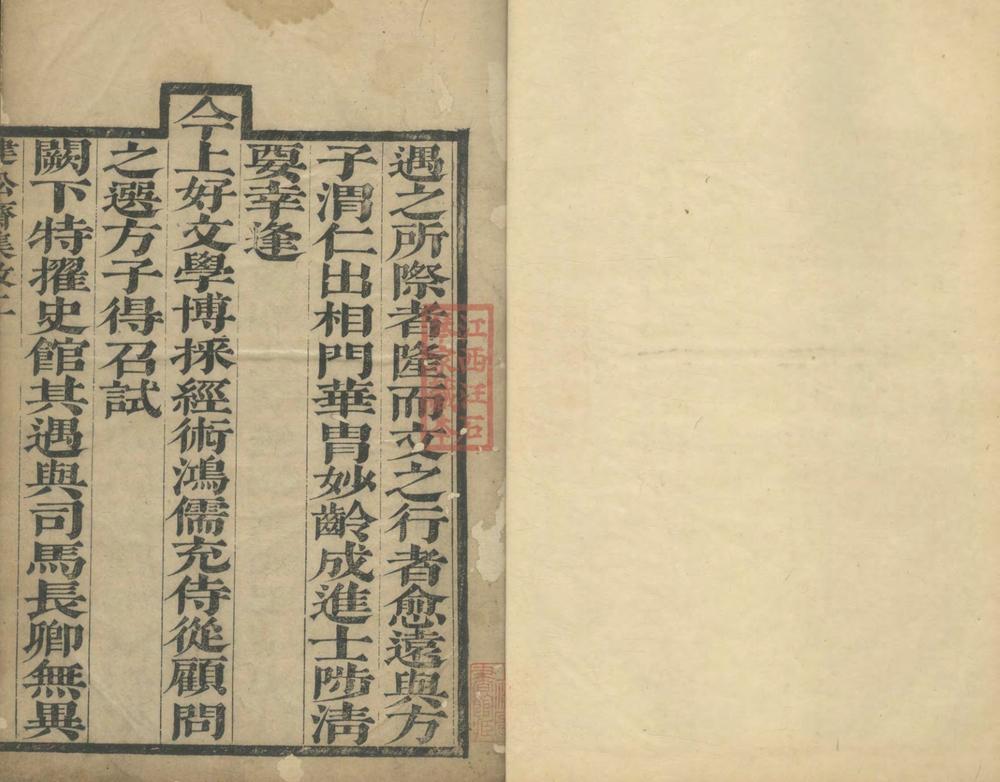 遇之所際者隆而文之行者愈遠與方
子渭仁出相門華胄妙齡成進士陟清
要幸逢
今上好文學博採經術鴻儒充侍從顧問
之選方子得召試
闕下特擢史館其遇與司馬長卿無異
松齋集
江西汪石
琴家藏本